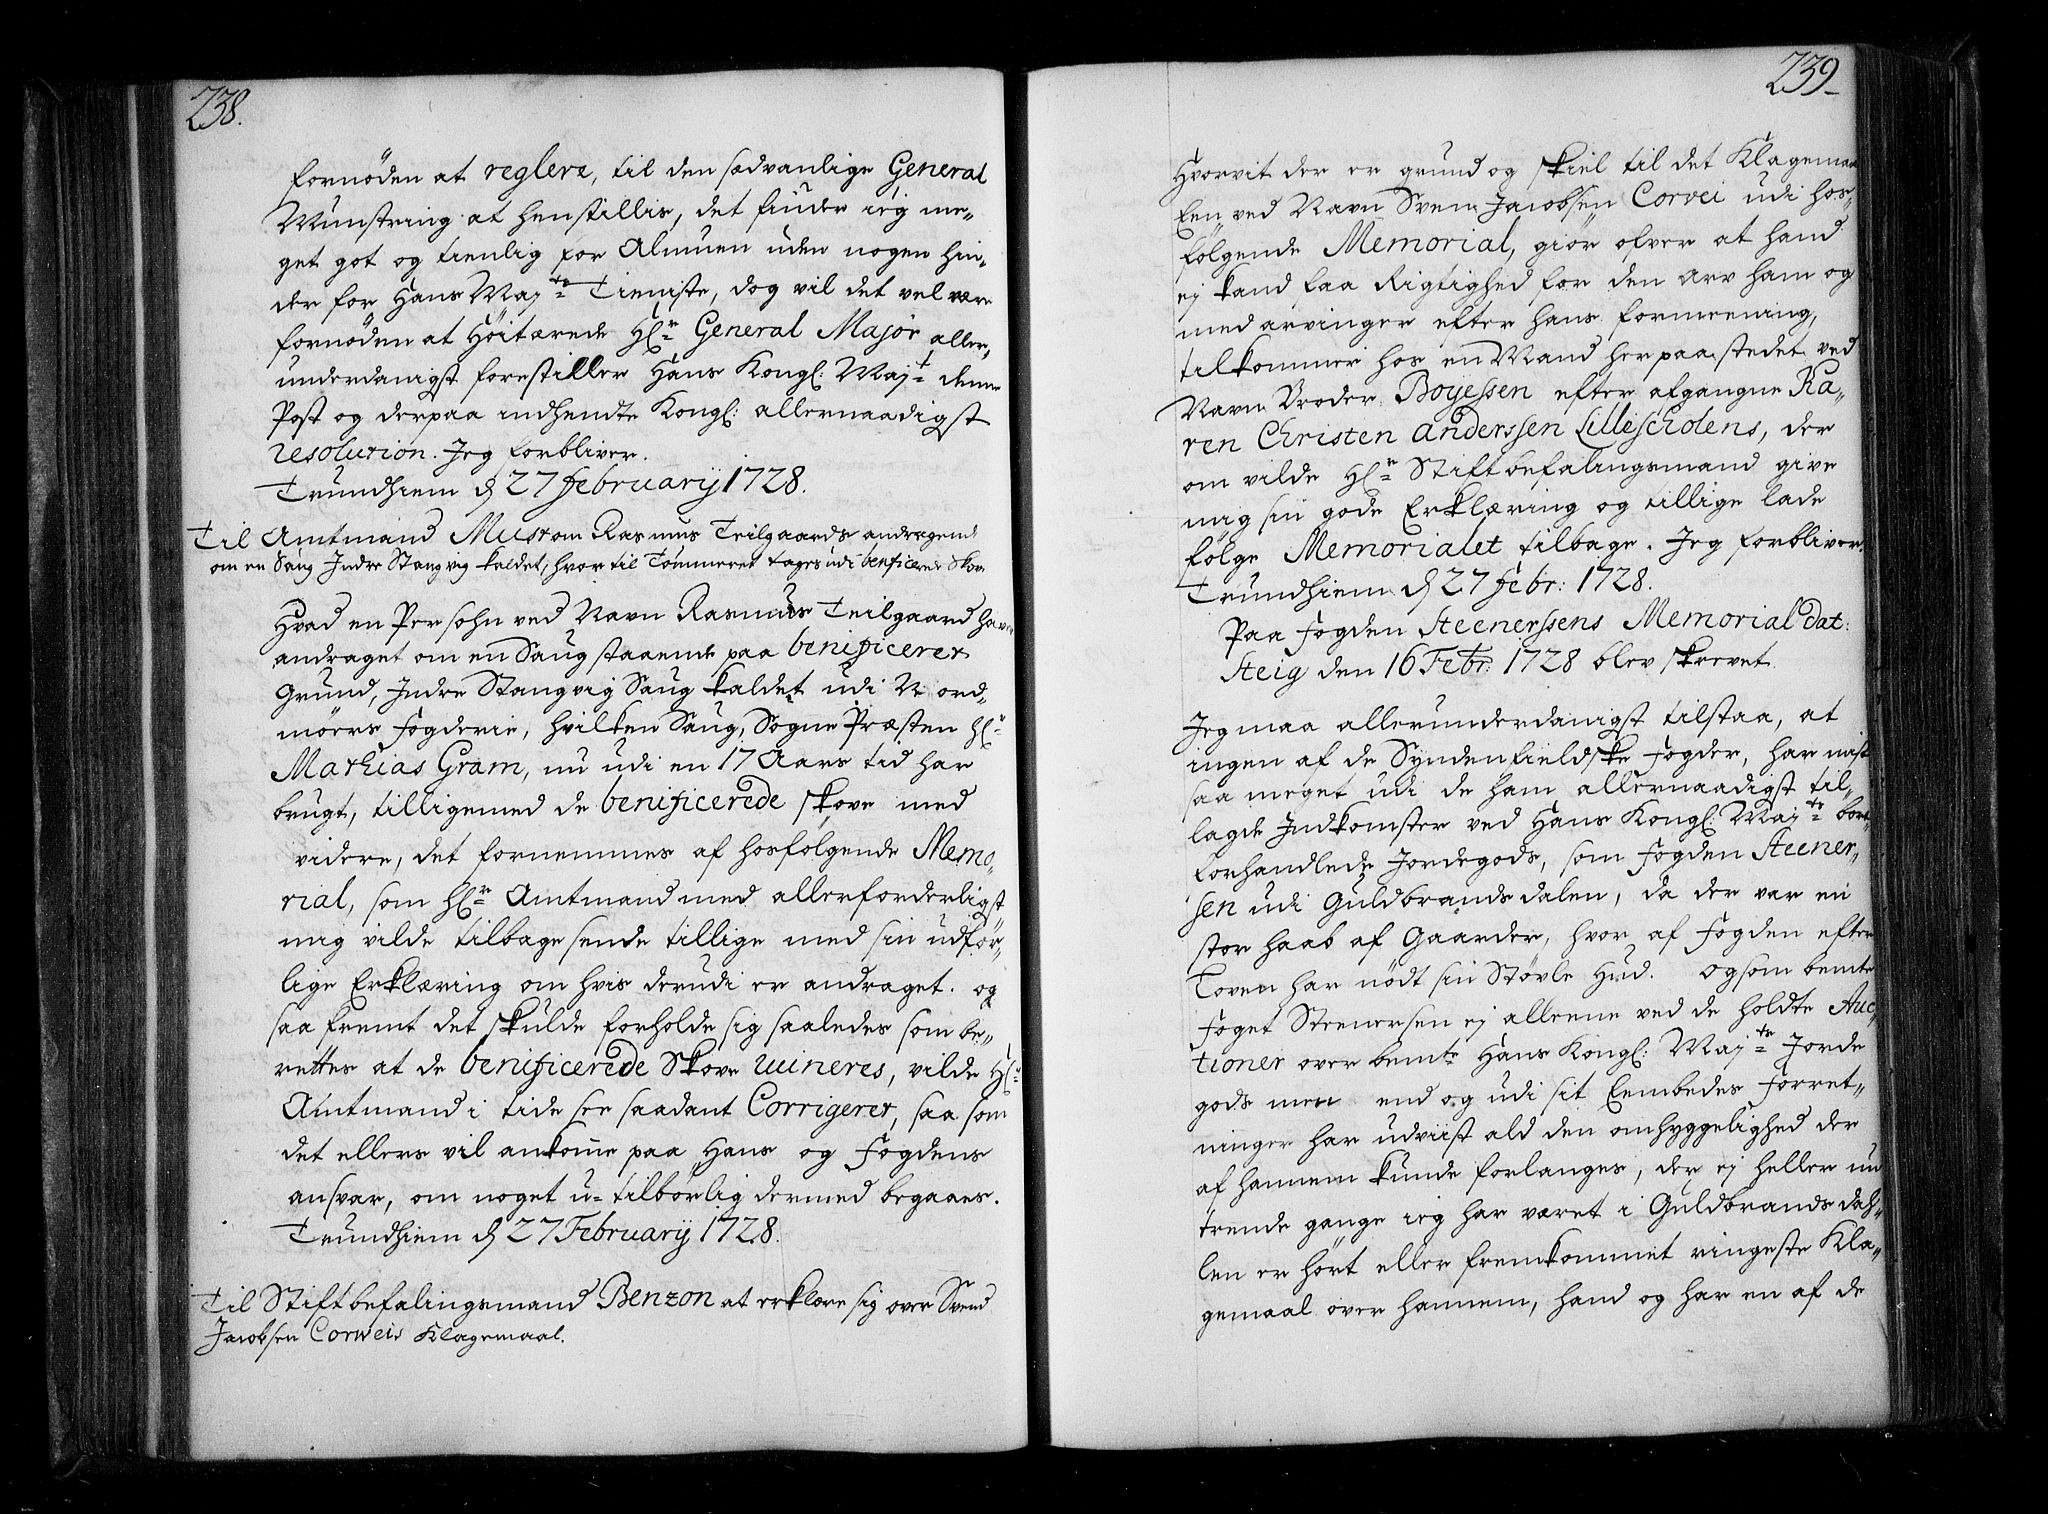 238.
fornöden at reglere, til den sædvanlige General
Munstring at henstilles, det finder ieg me„
get got og tienlig for Almuen uden nogen hin„
der for Hans Maj:ts Tieniste, dog vil det vel være
fornöden at Höitærede Hr General Major aller„
underdanigst forestiller Hans Kongl: Maj:t denne
Post og derpaa indhendte Kongl: allernaadigst
resolution. Jeg forbliver.
Trundhiem d 27 february 1728.
Til Amtmand Must om Rasmus Teilgaards andragende
om en Saug Indre Stangvig kaldet, hvor til Tömmeret tages udi benficered Skov
Hvad en Persohn ved Navn Rasmus Teilgaard haver
andraget om en Saug staaende paa benificeret
Grund, Indre Stangvig Saug kaldet udi Nord„
möers fogderie, hvilken Saug, Sogne Præsten Hr
Mathias Gram, nu udi en 17 Aars tid har
brugt, tilligemed de benificerede skove med
videre, det fornemmes af hosfölgende Memo„
rial, som Hr Amtmand med allerforderligst
mig vilde tilbage sende tillige med sin udför„
lige Erklæring om hvis derudi er andraget. og
saa fremt det skulde forholde sig saaledes som be„
rettes at de benificerede Skove ruineres, vilde Hr
Amtmand i tide see saadant Corrigeret, saa som
det ellers vil ankom̄e paa Hans og Fogdens
ansvar, om noget u-tilbörlig dermed begaaes.
Trundhiem d 27 February 1728.
Til Stiftbefalingsmand Benzon at erklære sig over Svend
Jacobsen Corweis Klagemaal.
239
Hvorvit der er grund og skiel til det Klagemaal
Een ved Navn Sven Jacobsen Corvei udi hos„
fölgende Memorial, giör ofver at hand
ej kand faa Rigtighed for den arv ham og
med arvinger efter hans formeening,
tilkommer hos en Mand her paa stedet ved
Navn Broder Boyessen efter afgangne Ka„
ren Christen Anderssen Lilleskiolens, der
om vilde Hr Stiftbefalingsmand give
mig sin gode Erklæring og tillige lade
fölge Memorialet tilbage. Jeg forbliver.
Trundhiem d 27 febr: 1728.
Paa Fogden Steenerssens Memorial dat:
Steig den 16 Febr: 1728 blev skrevet.
Jeg maa allerunderdanigst tilstaa, at
ingen af de Syndenfieldske fogder, har mist
saa meget udi de ham allernaadigst til„
lagde Indkomster ved Hans Kongl: Maj:ts bort„
forhandlede Jordegods, som Fogden Steener„
sen udi Guldbrandsdalen, da der var en
stor haab af Gaarder, hvor af Fogden efter
Loven har nödt sin Stövle Hud. ogsom bemte
foget Steenersen ej alleene ved de holdte Auc„
tioner over bemte Hans Kongl: Maj:ts Jorde
gods men end og udi sit Eembedes forret„
ninger har udviist ald den omhyggelighed der
af hannem kunde forlanges, der ej heller nu
trende gange ieg har været i Guldbrands dah„
len er hört eller fremkommet ringeste Kla„
gemaal over hannem, hand og har en af de